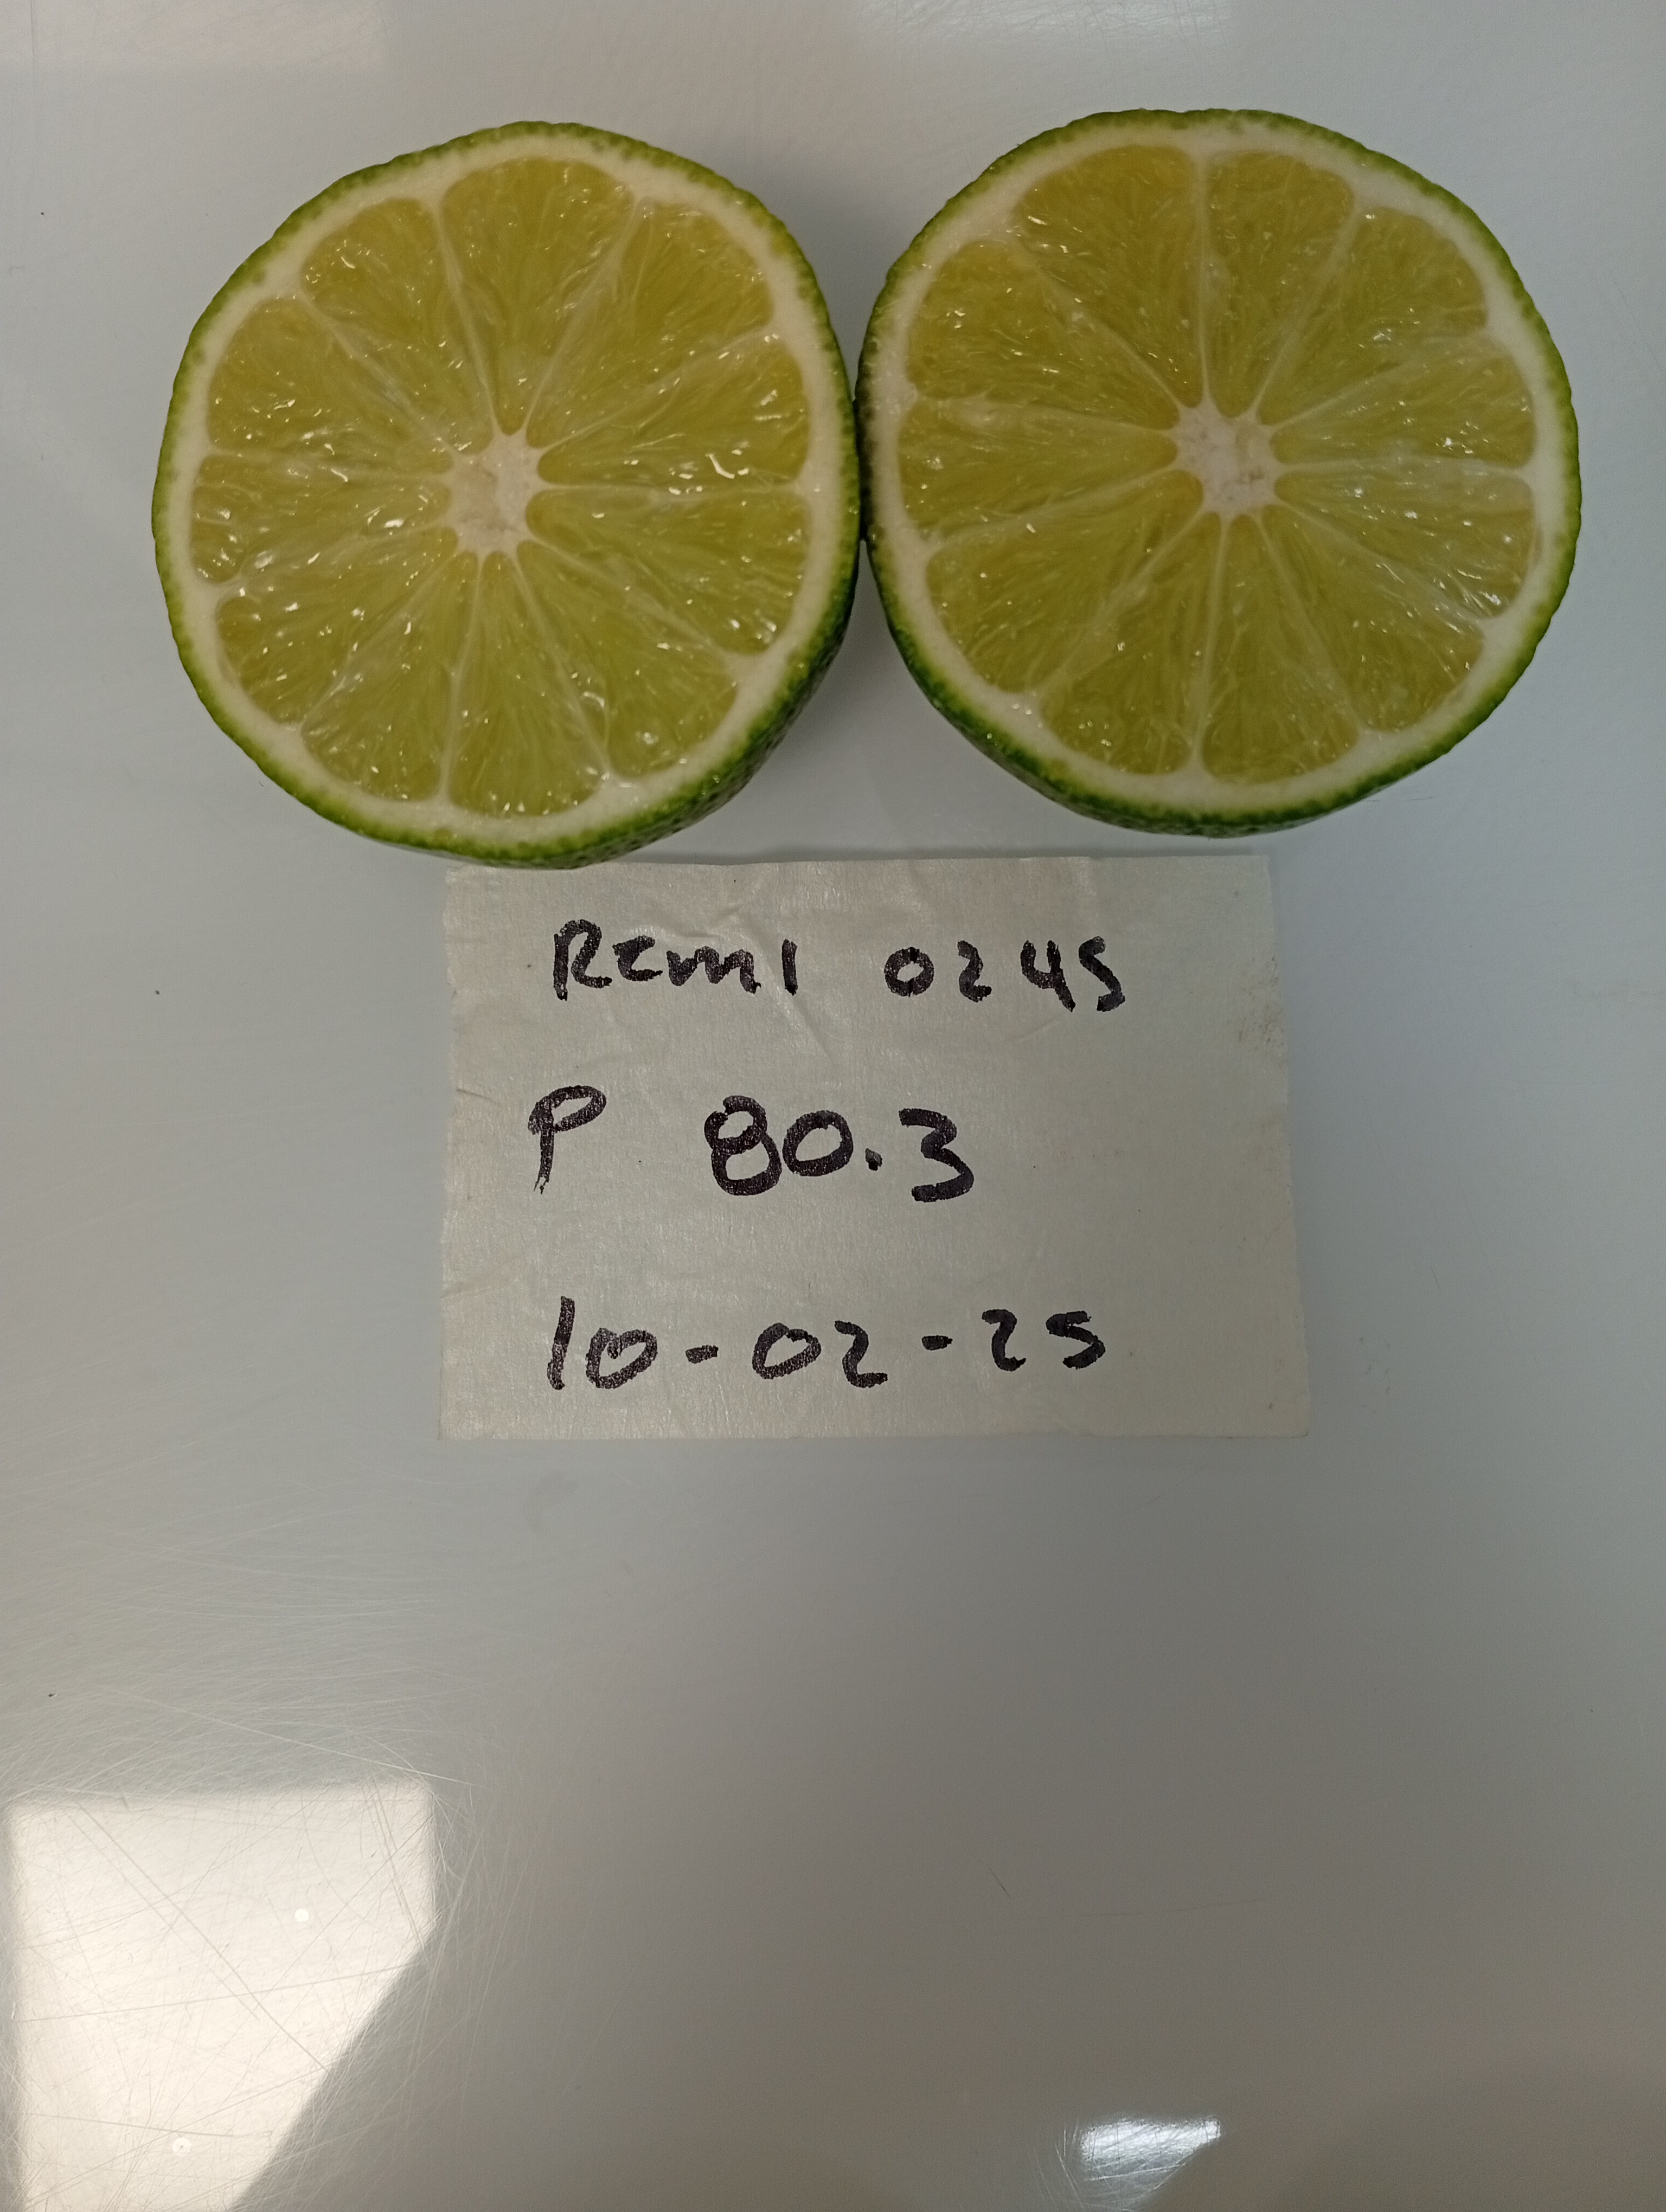 Remi 0245
P 80.3
10-02-25